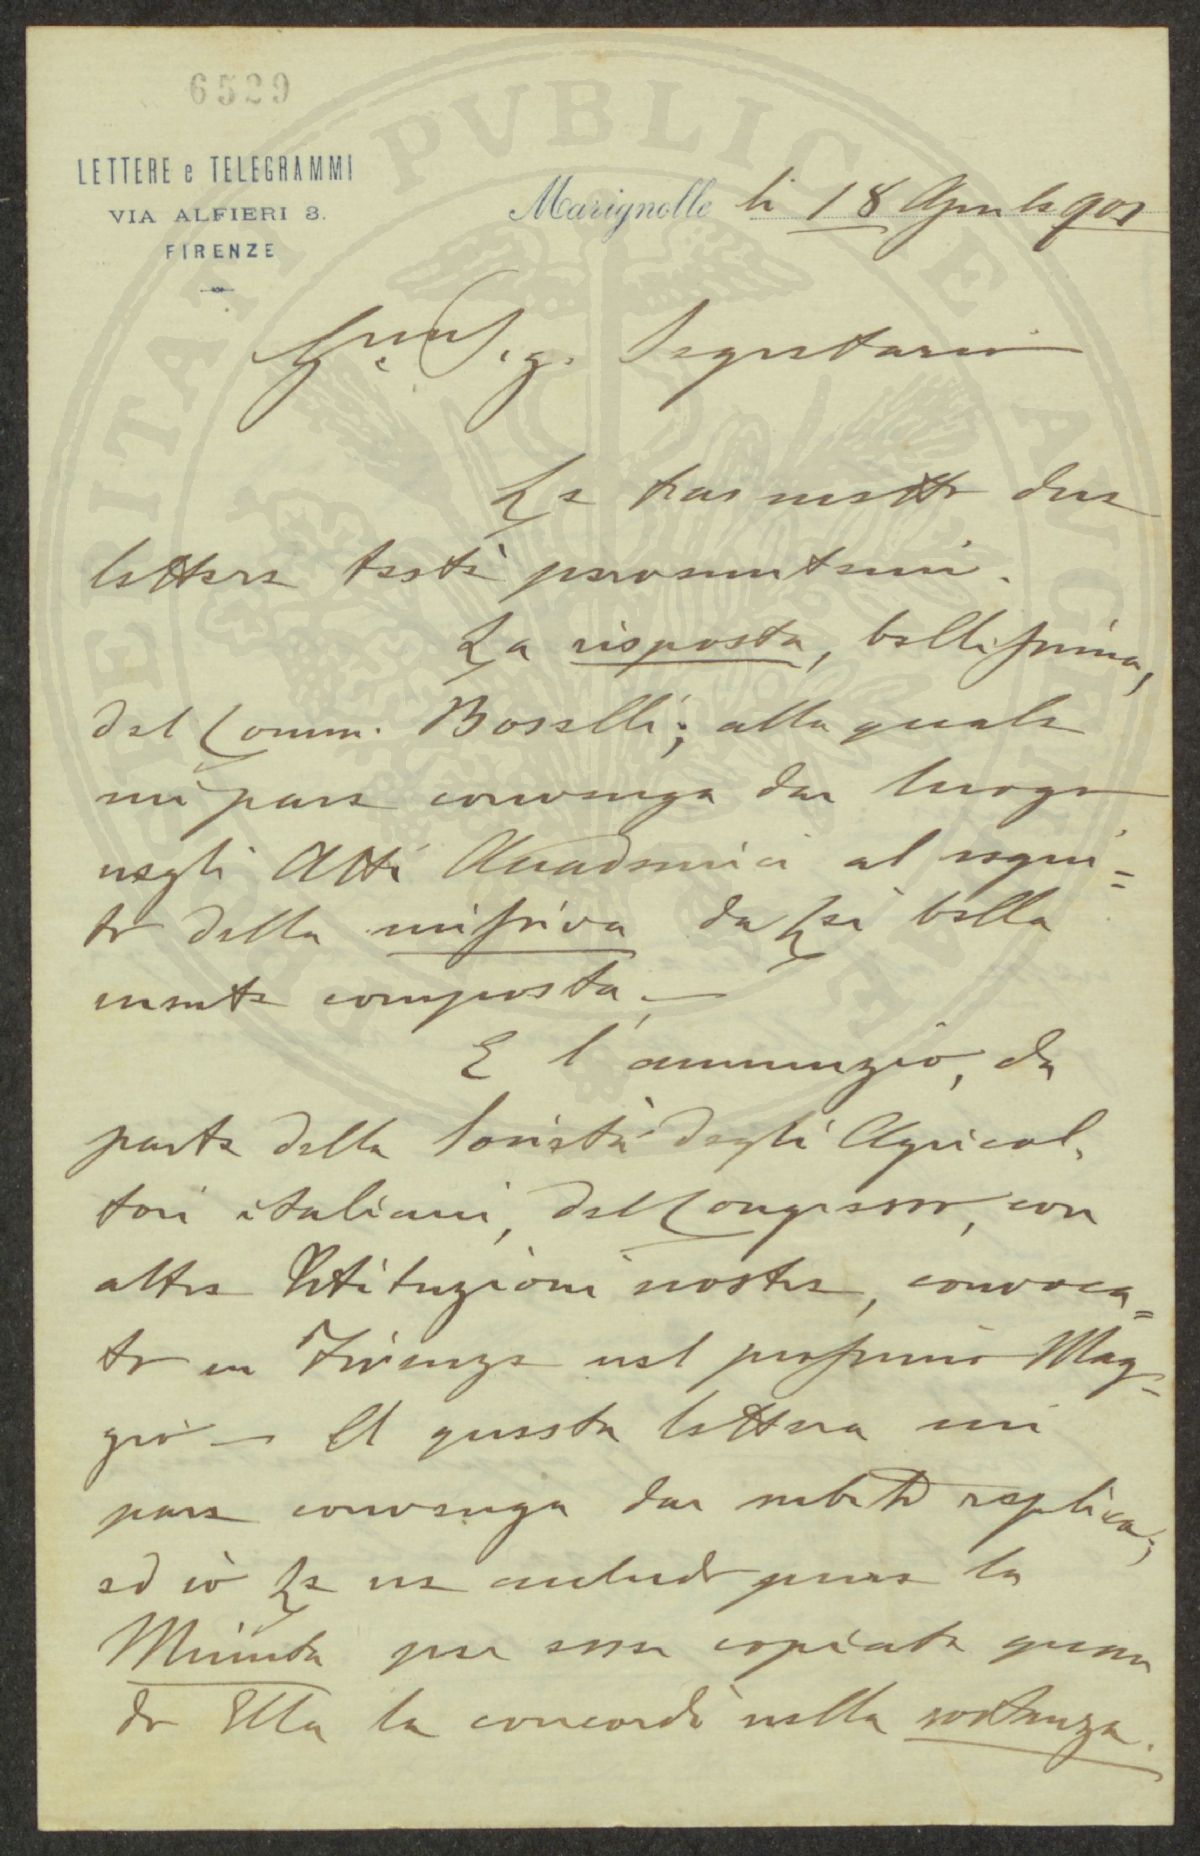 6529
LETTERE e TELEGRAMMI
VIA ALFIERI 3.
FIRENZE
Marignolle li 18 Aprile 901
Sig. Segretario
Le trasmetto due
lettere testè pervenutemi.
La risposta, bellissima,
del Comm. Boselli; alla quale
mi pare convenga dar luogo
negli Atti Accademici al segui=
to della missiva da Lei bella
mente composta. —
E l'annunzio, da
parte della Società degli Agricol.
tori italiani, del Congresso, con
altre Istituzioni nostre, convoca=
to in Firenze nel prossimo Mag=
gio — A questa lettera mi
pare convenga dar subito replica;
ed io Le ne includo pure la
Minuta per esser copiata quan
do Ella la concordi nella sostanza.